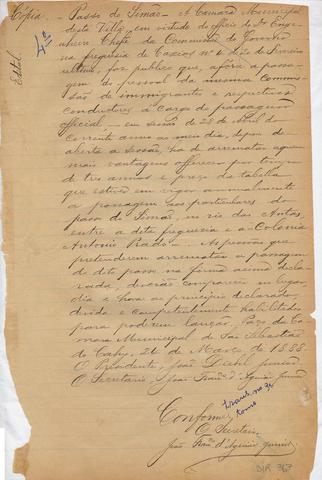 Cópia. Passo de Simão. A Camara Municipal
desta Villa, em virtude de officio do Dr. Enge
nheiro Chefe da Commissão de Governo
Edital
4ª
na freguesia de Caxias nº 4 de de Fevereiro
ultimo, faz publico que, afóra a passa-
gem do pessoal da mesma Commis-
são, de immigrantes e respectivos
conductores à cargo da passagem
official, em sessão de 28 de Abril do
corrente anno ao meio dia, depois de
aberta a sessão, ha de arrematar a quem
mais vantagens offerecer por tempo
de tres annos e preço da tabella
que estiver em vigor annualmente
a passagem dos particulares do
passo de Simão, no rio das Antas,
entre a dita freguesia e a Colonia
Antonio Prado. As pessôas que
pretenderem arrematar a passagem
do dito passo na fórma acima decla-
rada, deverão comparecer no lugar,
dia e hora ao principio declarados,
devida e competentemente habilitados
para poderem lançar. Paço da Ca-
mara Municipal de São Sebastião
do Cahy, 24 de Março de 1888.
O Presidente, João Diehl Junior
O Secretario, João Franco d'Aguiar Junior
Conforme,
O Secretario
João Franco d'Aguiar Junior
DIR 363